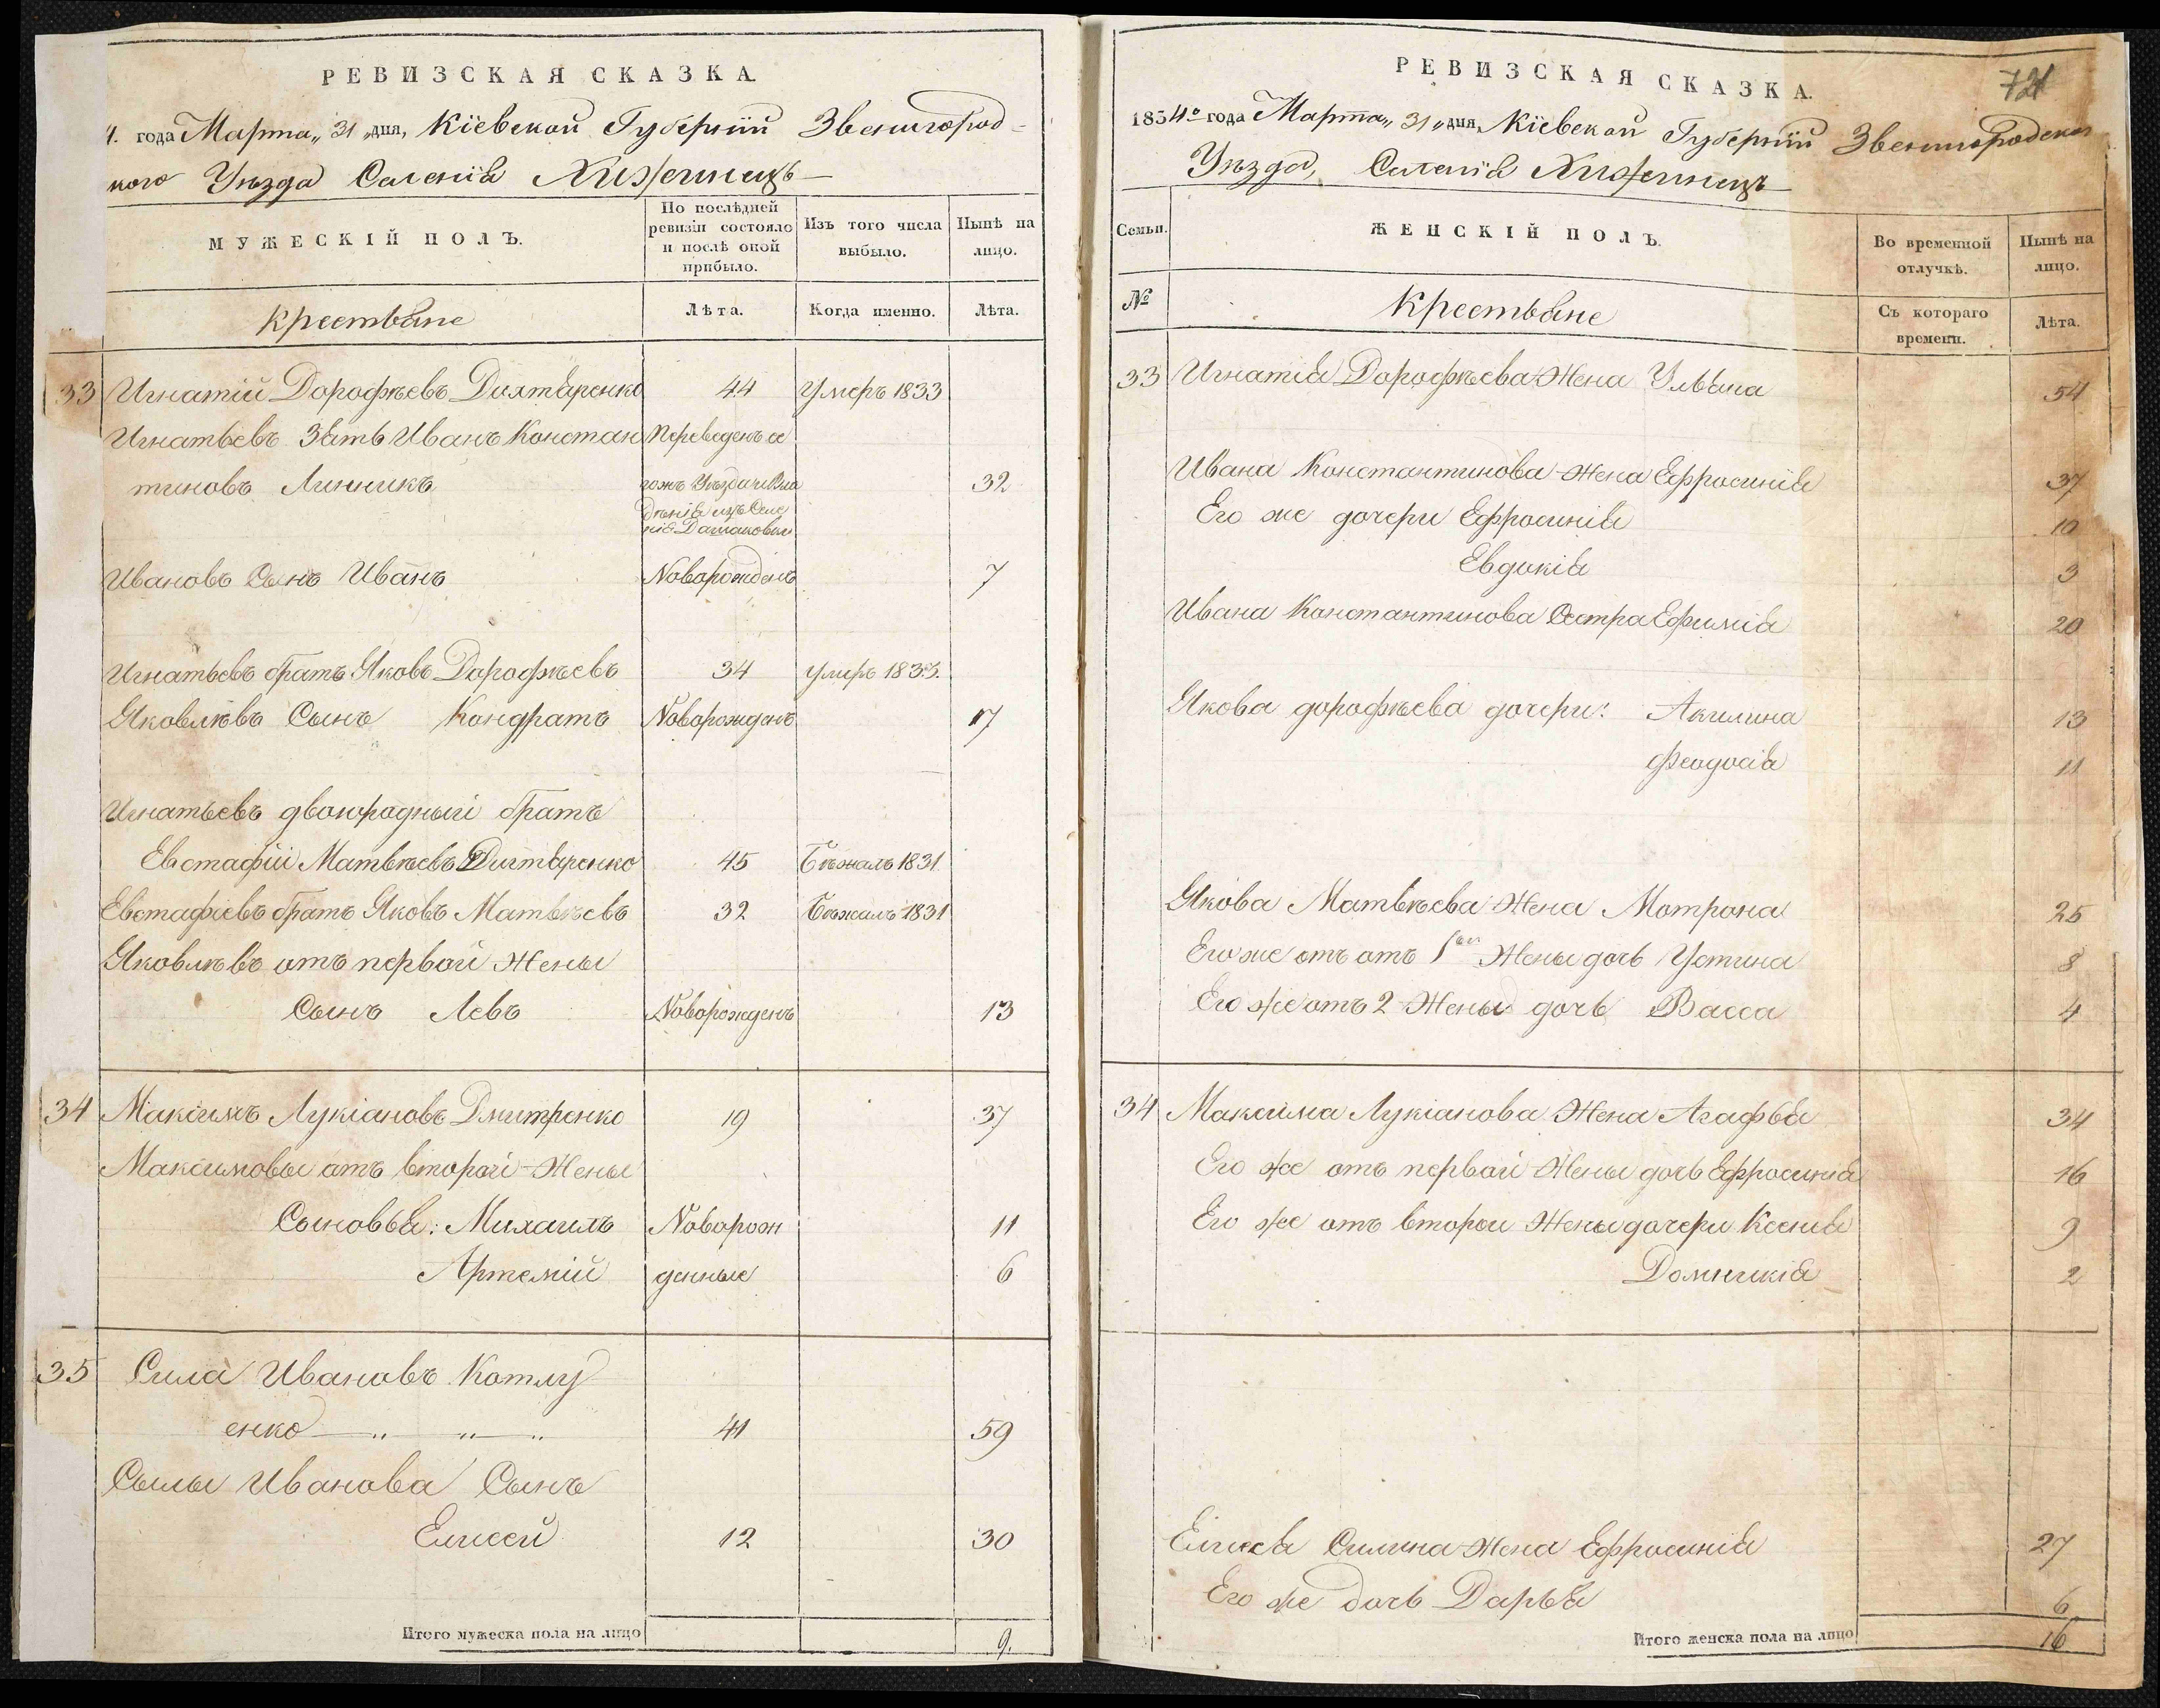 РЕВИЗСКАЯ СКАЗКА
4. года Марта „ 31 „ дня, Кіевской Губерніи Звенигород-
кого Уѣзда Селенія Хиженецъ
МУЖЕСКІЙ ПОЛЪ.
По послѣдней ревизіи состояло и послѣ оной прибыло.
Изъ того числа выбыло.
Нынѣ на лицо.
Крестьяне
Лѣта.
Когда именно.
Лѣта.
33 Игнатій Дорофѣевъ Дихтяренко 44 Умеръ 1833
Игнатьевъ Зять Иванъ Констан Переведенъ се
тиновъ Линникъ гожъ Уѣзда и Вла 32
дѣнія изъ Селе
нія
Ивановъ Сынъ Иванъ Новорожденъ 7
Игнатьевъ братъ Яковъ Дорофѣевъ 34 умиръ 1833.
Яковлѣвъ Сынъ Кондратъ Новорожденъ 17
Игнатьевъ двоюродный братъ
Евстафій Матвѣевъ Дигтяренко 45 Бѣжалъ 1831.
Евстафіевъ братъ Яковъ Матвѣевъ 32 Бѣжалъ 1831
Яковлѣвъ отъ первой Жены
Сынъ Левъ Новорожденъ 13
34 Максимъ Лукіановъ Дмитренко 19 37
Максимовы отъ второй Жены
Сыновья: Михаилъ Новорож 11
Артемій денные 6
35 Сила Ивановъ Котлу
енко 41 59
Сылы Иванова Сынъ
Елисей 12 30
Итого мужеска пола на лицо 9.
РЕВИЗСКАЯ СКАЗКА.
1834го года Марта „ 31 „ дня, Кіевской Губерніи Звенигородског
Уѣзда, Селенія Хиженецъ
Семьи.
ЖЕНСКІЙ ПОЛЪ.
Во временной отлучкѣ.
Нынѣ на лицо.
№
Крестьяне
Съ котораго времени.
Лѣта.
33 Игнатія Дорофѣева Жена Ульяна 54
Ивана Константинова Жена Ефросинія 37
Его же дочери Ефросинія 10
Евдокія 3
Ивана Константинова Сестра Ефимія 20
Якова дорофѣева дочери: Акилина 13
Феодосія 11
Якова Матвѣева Жена Мотрона 25
Его же отъ отъ 1ой Жены дочь Устина 8
Его же отъ 2 Жены дочь Васса 4
34 Максима Лукіанова Жена Агафья 34
Его же отъ первой Жены дочь Ефросинія 16
Его же отъ второи Жены дочери Ксенія 9
Домникія 2
Елисея Силина Жена Ефросинія 27
Его же дочь Дарья 6
Итого женска пола на лицо 16